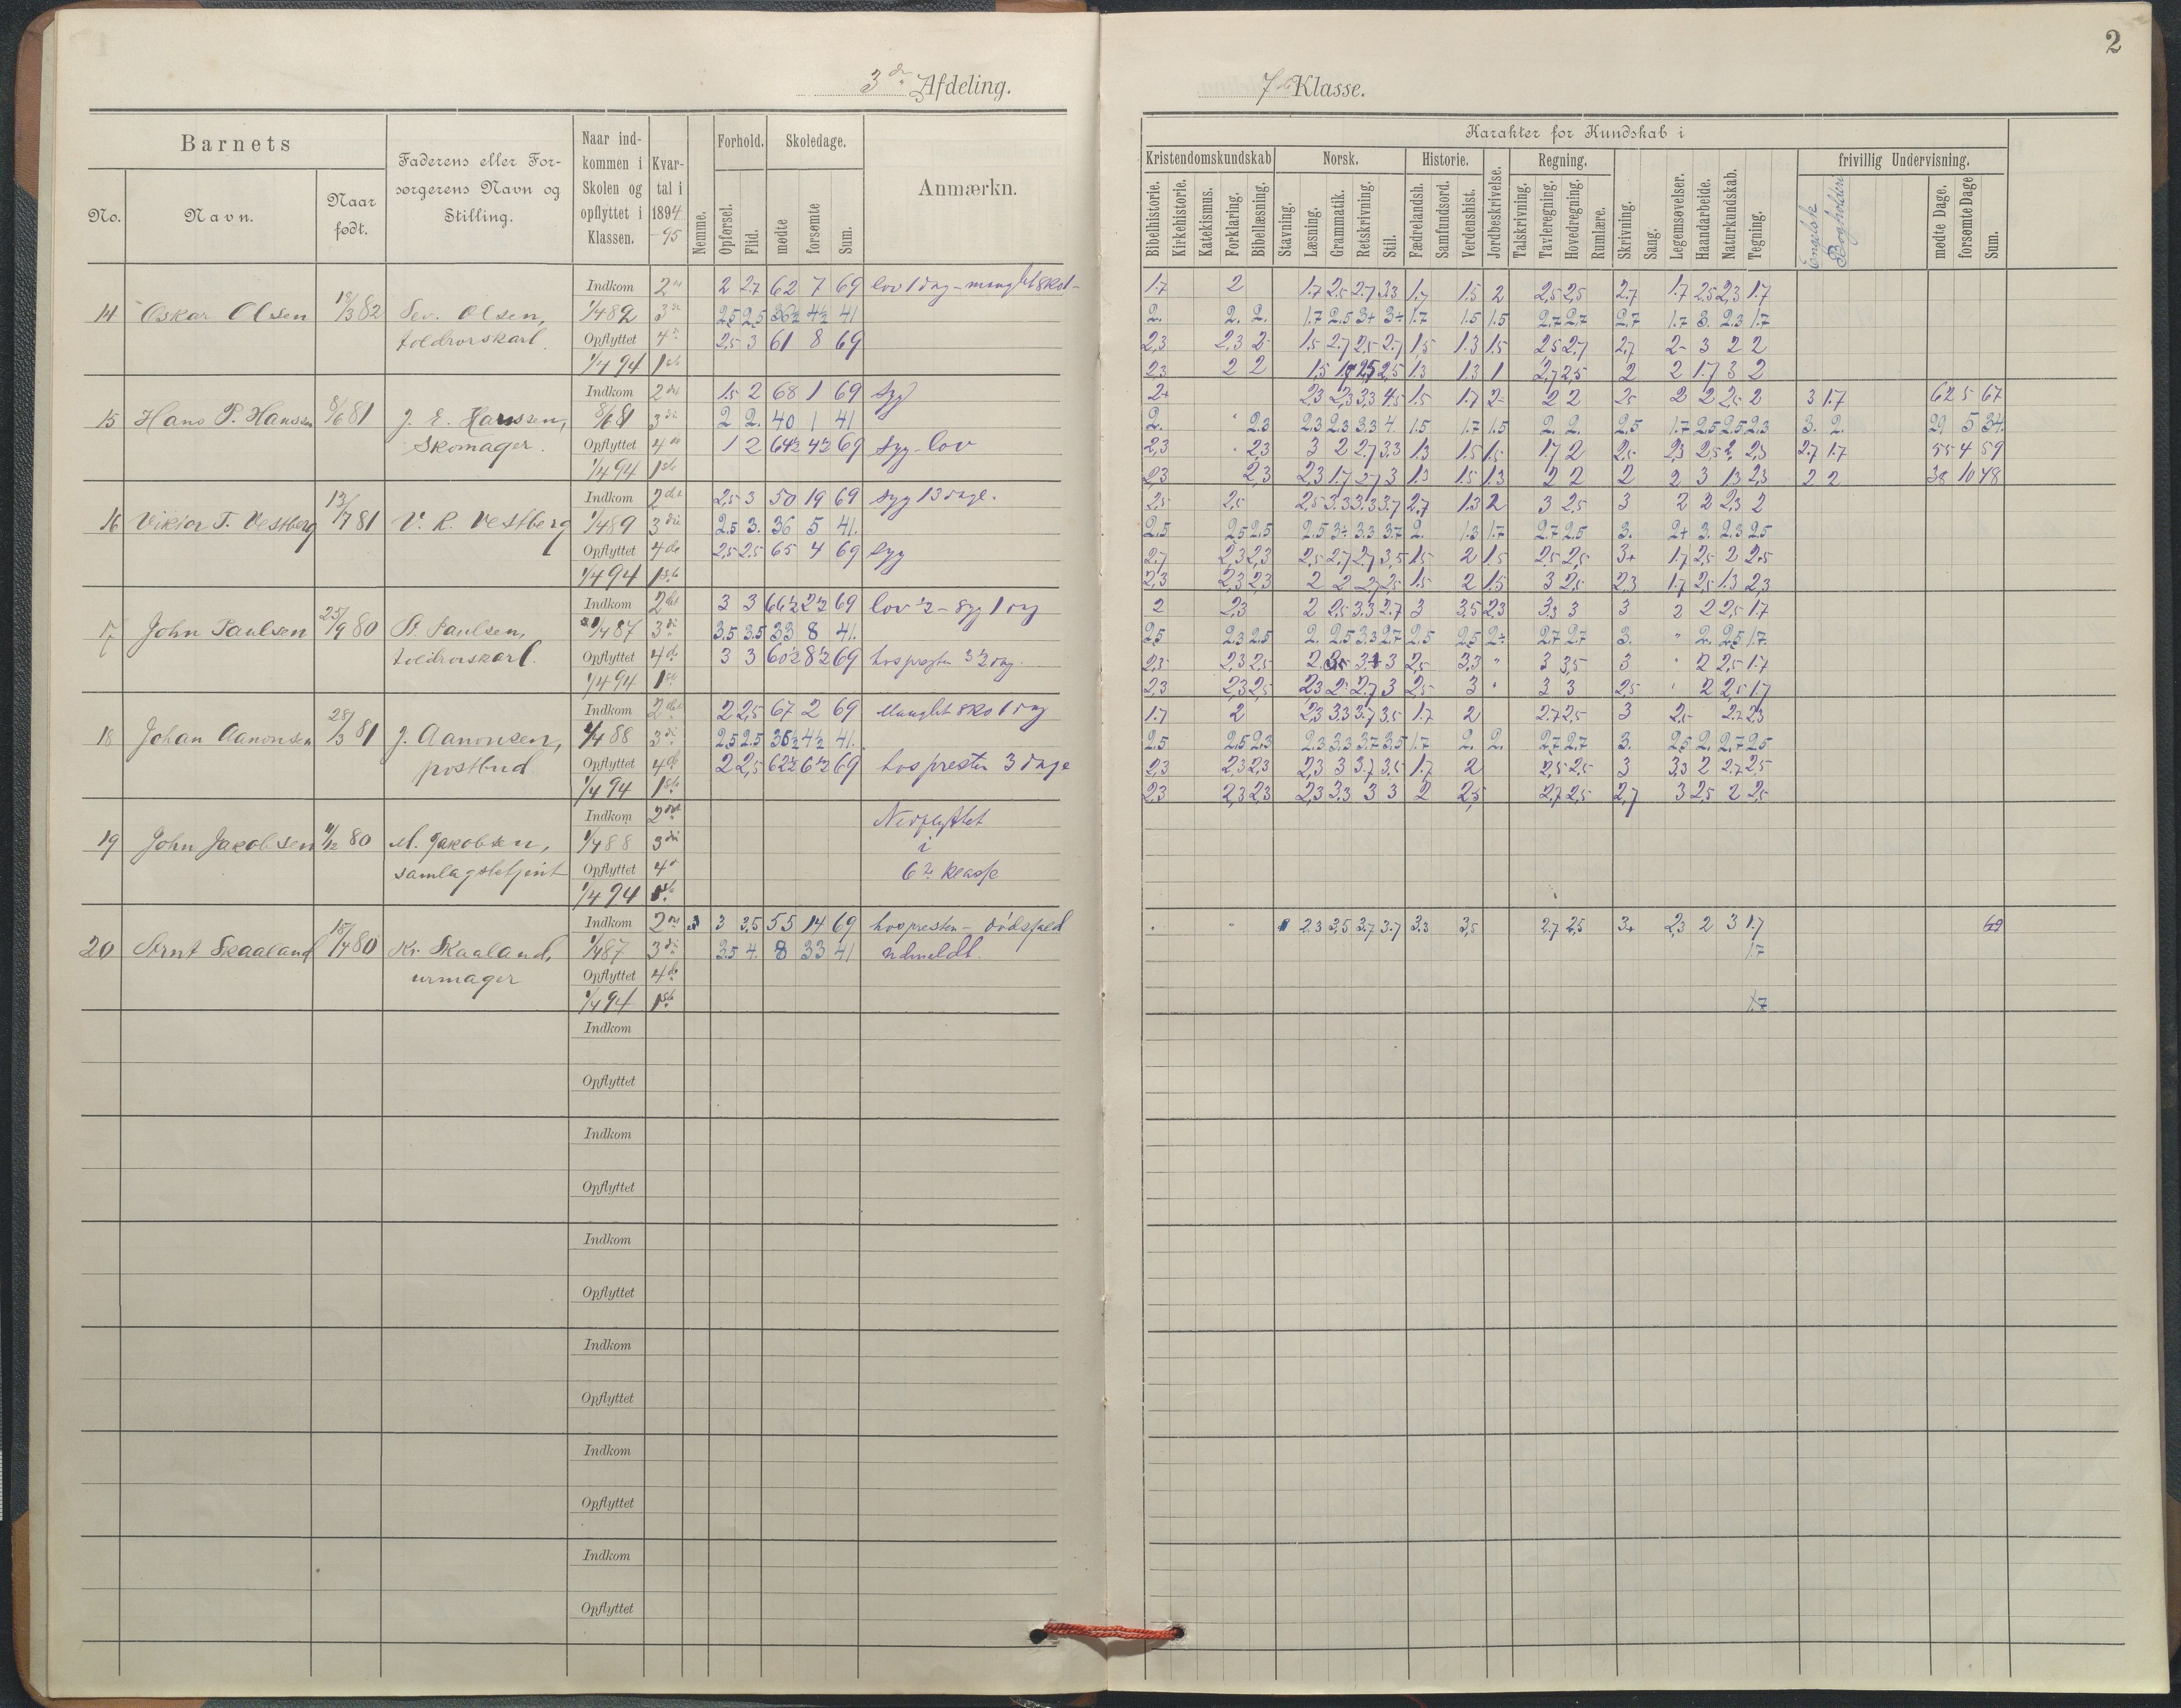 2
3die Afdeling.
7de Klasse.
Barnets
No.
Navn.
Naar født.
Faderens eller Forsørgerens Navn og Stilling.
Naar indkommen i Skolen og opflyttet i Klassen.
Kvartal i 1894-95
Nemme.
Forhold.
Opførsel.
Flid.
Skoledage.
mødte
forsømte
Sum.
Anmærkn.
Karakter for Kundskab i
Kristendomskundskab
Bibelhistorie.
Kirkehistorie.
Katekismus.
Forklaring.
Bibellæsning.
Norsk.
Stavning.
Læsning.
Grammatik.
Retskrivning.
Stil.
Historie.
Fædrelandsh.
Samfundsord.
Verdenshist.
Jordbeskrivelse.
Regning.
Talskrivning.
Tavleregning.
Hovedregning.
Rumlære.
Skrivning.
Sang.
Legemsøvelser.
Haandarbeide.
Naturkundskab.
Tegning.
frivillig Undervisning.
Engelsk
Bogholderi
mødte Dage.
forsømte Dage
Sum.
Indkom 2det 2 2.7 62 7 69 lov 1 dag - manglet sko 1 - 1.7 2 1.7 2.5 2.7 3.3 1.7 1.5 2 2.5 2.5 2.7 1.7 2.5 2.3 1.7
14 Oskar Olsen 18/3 82 Sev. Olsen, 1/4 89 3die 2.5 2.5 36½ 4½ 41 2. 2. 2. 1.7 2.5 3+ 3÷ 1.7 1.5 1.5 2.7 2.7 2.7 1.7 3. 2.3 1.7
toldrorskarl. Opflyttet 4de 2.5 3 61 8 69 2,3 2,3 2- 1.5 2.7 2.5 2.7 1.5 1.3 1.5 2.5 2.7 2.7 2- 3 2 2
1/4 94 1ste 2.3 2 2 1.5 2.5 1.3 1.3 1 2.7 2.5 2 2 1.7 3 2
Indkom 2det 1.5 2 68 1 69 syg 2+ 2.3 2.3 3.3 4.5 1.5 1.7 2- 2 2 2.5 2 2 2.5 2 3 1.7 62 5 67
15 Hans P. Hanssen 8/6 81 J. E. Hanssen, 8/6 81 3die 2 2. 40 1 41 2. " 2.3 2.3 2.3 3.3 4. 1.5 1.7 1.5 2. 2. 2.5 1.7 2.5 2.5 2.3 3. 2. 29 5 34.
Skomager. Opflyttet 4de 1 2 64½ 4½ 69 syg - lov 2,3 " 2,3 3 2 2.7 3.3 1.3 1.5 1.5 1.7 2 2.5 2.3 2.5 2, 2.3 2.7 1.7 55 4 59
1/4 94 1ste 2,3 2,3 2.3 1.7 2.7 3 1.3 1.5 1.3 2 2 2 2 3 1.3 2.3 2 2 38 10 48
Indkom 2det 2.5 3 50 19 69 syg 13 dage. 2.5 2.5 2.5 3.3 3.3 3.7 2.7 1.3 2 3 2.5 3 2 2 2.3 2
16 Viktor T. Vestberg 13/7 81 V. R. Vestberg 1/4 89 3die 2.5 3. 36 5 41. 2.5 2.5 2.5 2.5 3÷ 3.3 3.7 2. 1.3 1.7 2.7 2.5 3. 2+ 3. 2.3 2.5
Opflyttet 4de 2.5 2.5 65 4 69 syg 2.7 2.3 2.3 2.5 2.7 2.7 3.5 1.5 2 1.5 2.5 2.5 3+ 1.7 2.5 2 2.5
1/4 94 1ste 2,3 2,3 2,3 2 2 2.5 1.5 2 1.5 3 2.5 2.3 1.7 2.5 1.3 2.3
Indkom 2det 3 3 66½ 2½ 69 lov ½ - syg 1 dag 2 2.3 2 2.5 3.3 2.7 3 3.5 2.3 3.3 3 3 2 2 2.5 1.7
17 John Paulsen 25/9 80 P. Paulsen, 1/4 87 3die 3.5 3.5 33 8 41. 2.5 2.3 2.5 2. 2.5 3.3 2.7 2.5 2.5 2÷ 2.7 2.7 3. " 2. 2.5 1.7.
toldrorskarl. Opflyttet 4de 3 3 60½ 8½ 69 hos presten 3½ dag. 2.3 2.3 2.5 3 2.5 3.3 " 3 3.5 3 " 2 2.5 1.7
1/4 94 1ste 2,3 2,3 2.5 2.3 2- 2.7 3 2.5 3 " 3 3 2.5 " 2 2.5 1.7
Indkom 2det 2 2.5 67 2 69 Manglet sko 1 dag 1.7 2 2.3 3.3 3.7 3.5 1.7 2 2.7 2.5 3 2.5 2.7 2.3
18 Johan Aanonsen 28/3 81 J. Aanonsen, 1/4 88 3die 2.5 2.5 36½ 4½ 41. 2.5 2.5 2.3 2.3 3.3 3.7 3.5 1.7 2. 2. 2.7 2.7 3. 2.5 2. 2.7 2.5
postbud. Opflyttet 4de 2 2.5 62½ 6½ 69 hos presten 3 dage 2.3 2.3 2.3 2.3 3 3.7 3.5 1.7 2 2.5 2.5 3 3.3 2 2.7 2.5
1/4 94 1ste 2.3 2.3 2.3 2.3 3.3 3 3 2 2.5 2.7 2.5 2.7 3 2.5 2 2.5
Indkom 2det Nedflyttet
19 John Jakobsen 11/12 80 M. Jakobsen, 1/4 88 3die i
samlagsbetjent Opflyttet 4de 6te klasse
1/4 94
Indkom 2det 3 3 3.5 55 14 69 hos presten - dødsfald " " 2.3 3.5 3.7 3.7 3.3 3.5 2.7 2.5 3+ 2.3 2 3 1.7 69
20 Arnt Skaaland 18/4 80 Kr. Skaaland, 1/4 87 3die 3.5 4. 8 33 41 udmeldt. 1.7
urmager Opflyttet 4de
1/4 94 1ste 1.7
Indkom
Opflyttet
Indkom
Opflyttet
Indkom
Opflyttet
Indkom
Opflyttet
Indkom
Opflyttet
Indkom
Opflyttet